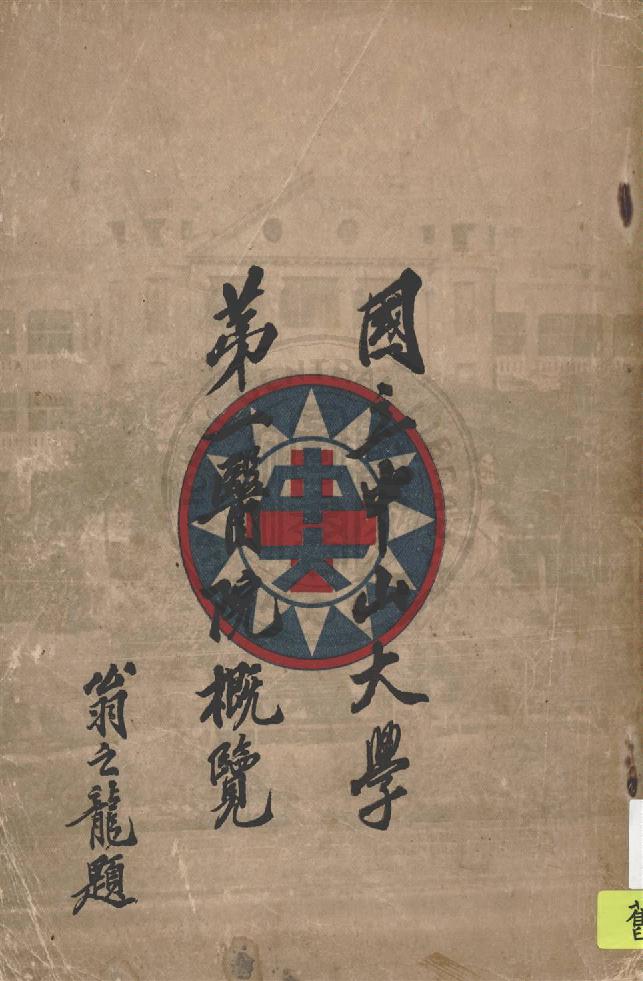 國立中山大學
第一醫院概覽
翁之龍題
中大
舊